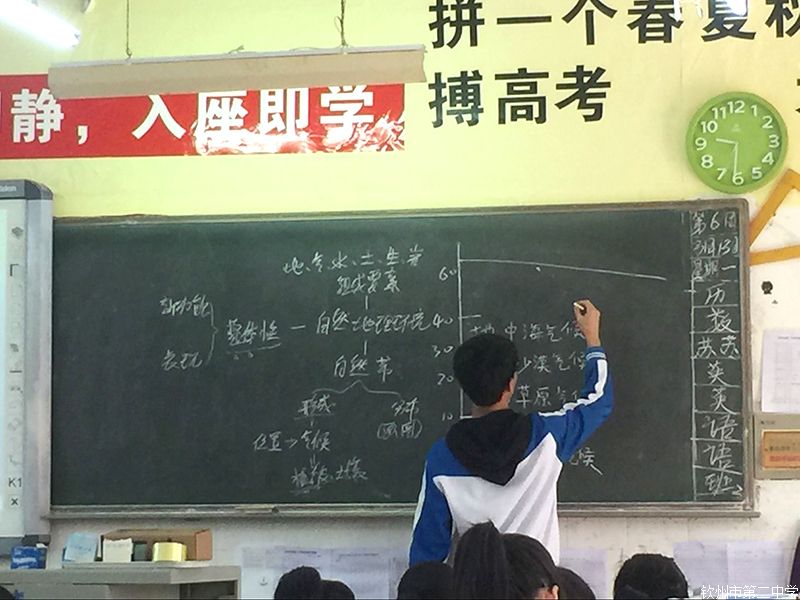 拼一个春夏秋
搏高考
静，入座即学
12
1
2
3
4
5
6
7
8
9
10
11
地、气、水、土、生、岩
组成要素
新功能
表现
整体性 — 自然地理环境
自然带
形成
分布
位置→气候
60
40
30
20
10
地中海气候
沙漠气候
草原气候
候
第6周
星期一
历
数
英
英
语
语
班
K1
钦州市第二中学